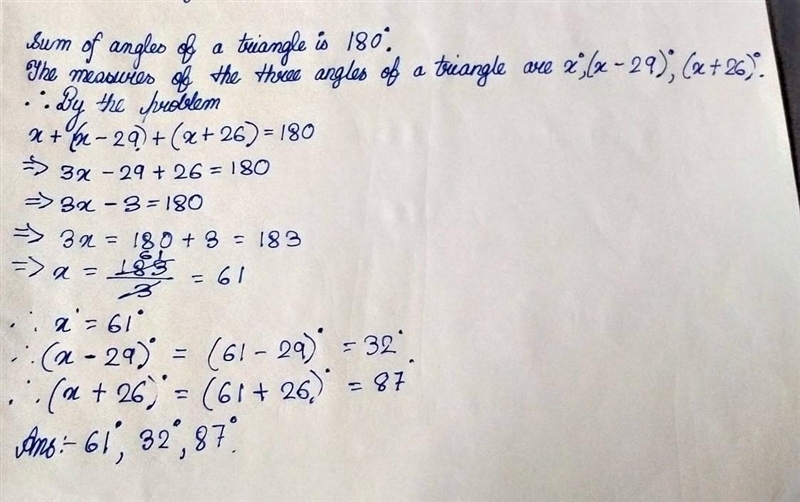 Sum of angles of a triangle is 180°.
The measures of the three angles of a triangle are x°, (x - 29)°, (x + 26)°.
∴ By the problem
x + (x - 29) + (x + 26) = 180
⇒ 3x - 29 + 26 = 180
⇒ 3x - 3 = 180
⇒ 3x = 180 + 3 = 183
⇒ x = 183/3 61 = 61
∴ x° = 61°
∴ (x - 29)° = (61 - 29)° = 32°
∴ (x + 26)° = (61 + 26)° = 87°
Ans:- 61°, 32°, 87°.